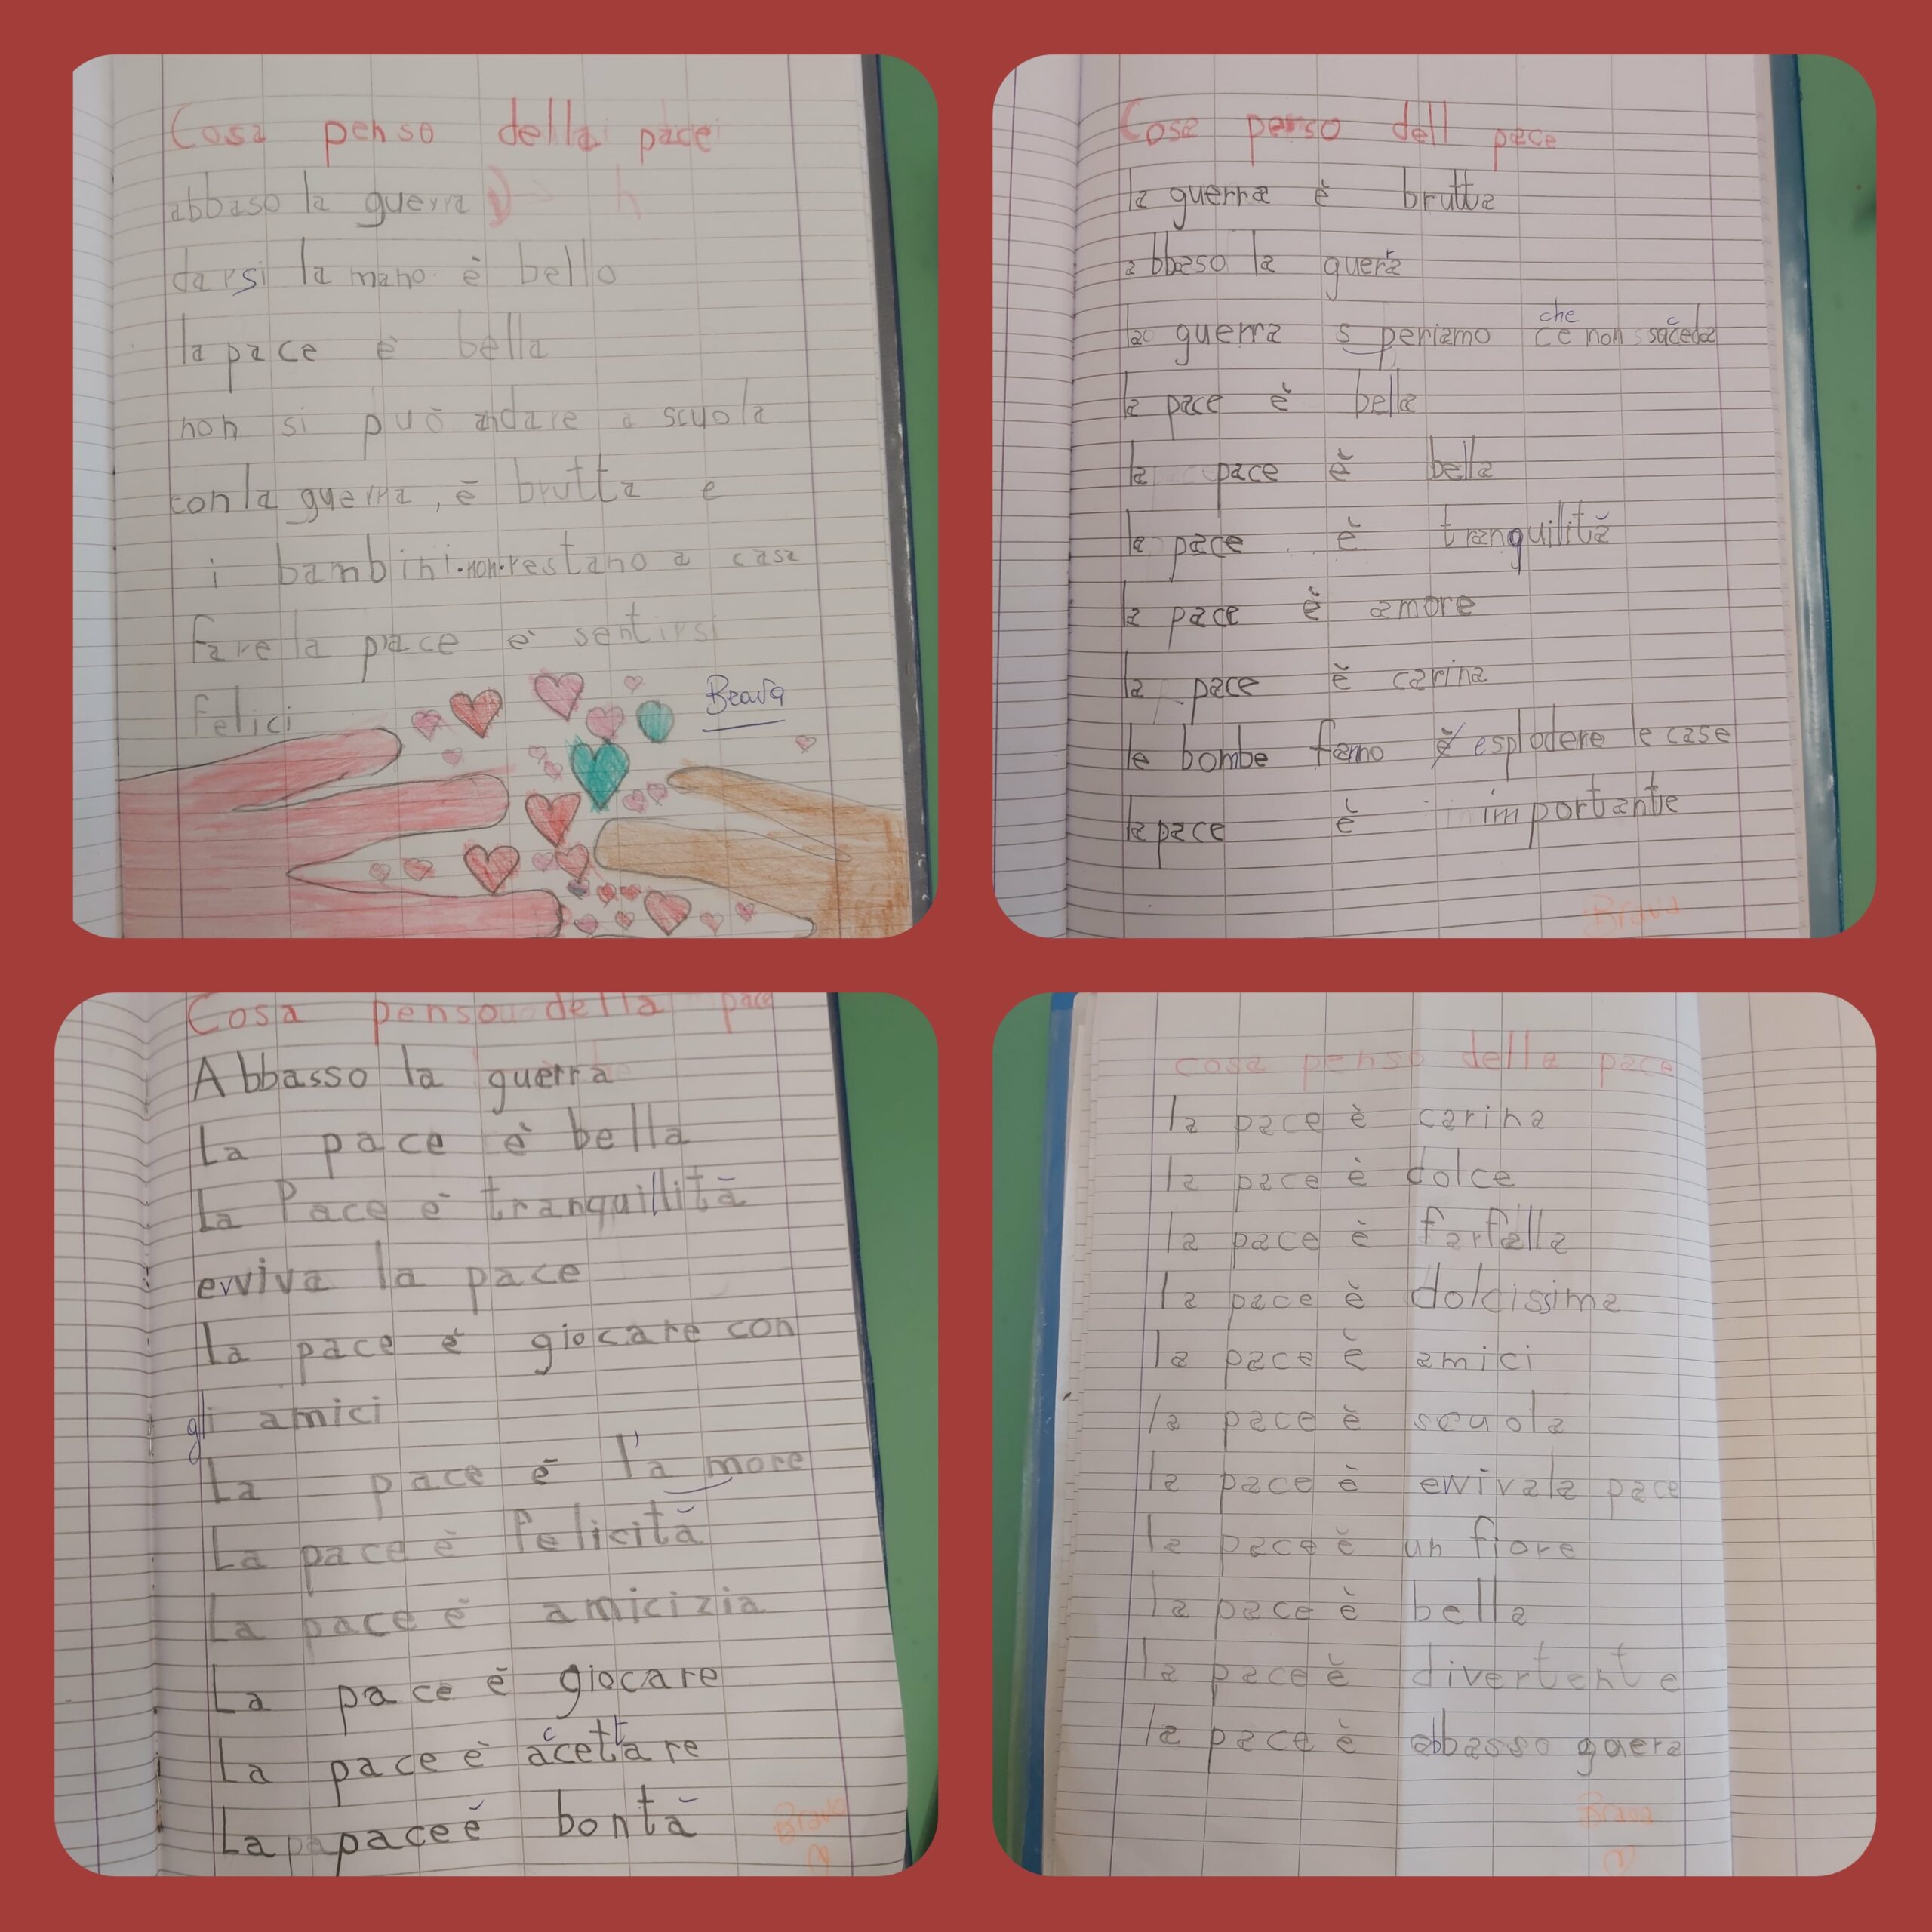 Cosa penso della pace
abbaso la guerra
darsi la mano è bello
la pace è bella
non si può andare a scuola
con la guerra, è brutta e
i bambini non restano a casa
fare la pace è sentirsi
felici
Brava
Cosa penso dell pace
la guerra è brutta
abbaso la guerra
la guerra speriamo che
ce non succeda
la pace è bella
la pace è bella
la pace è tranquilità
la pace è amore
la pace è carina
le bombe famo esplodere le case
la pace è importante
Brava
Cosa penso della pace
Abbasso la guerra
La pace è bella
La Pace è tranquillità
evviva la pace
La pace è giocare con
gli amici
La pace è l'a more
La pace è felicità
La pace è amicizia
La pace è giocare
La pace è accettare
La papace è bontà
Brava
cosa penso della pace
la pace è carina
la pace è dolce
la pace è farfalla
la pace è dolcissima
la pace è amici
la pace è scuola
la pace è evviva la pace
la pace è un fiore
la pace è bella
la pace è divertente
la pace è abbasso guera
Brava